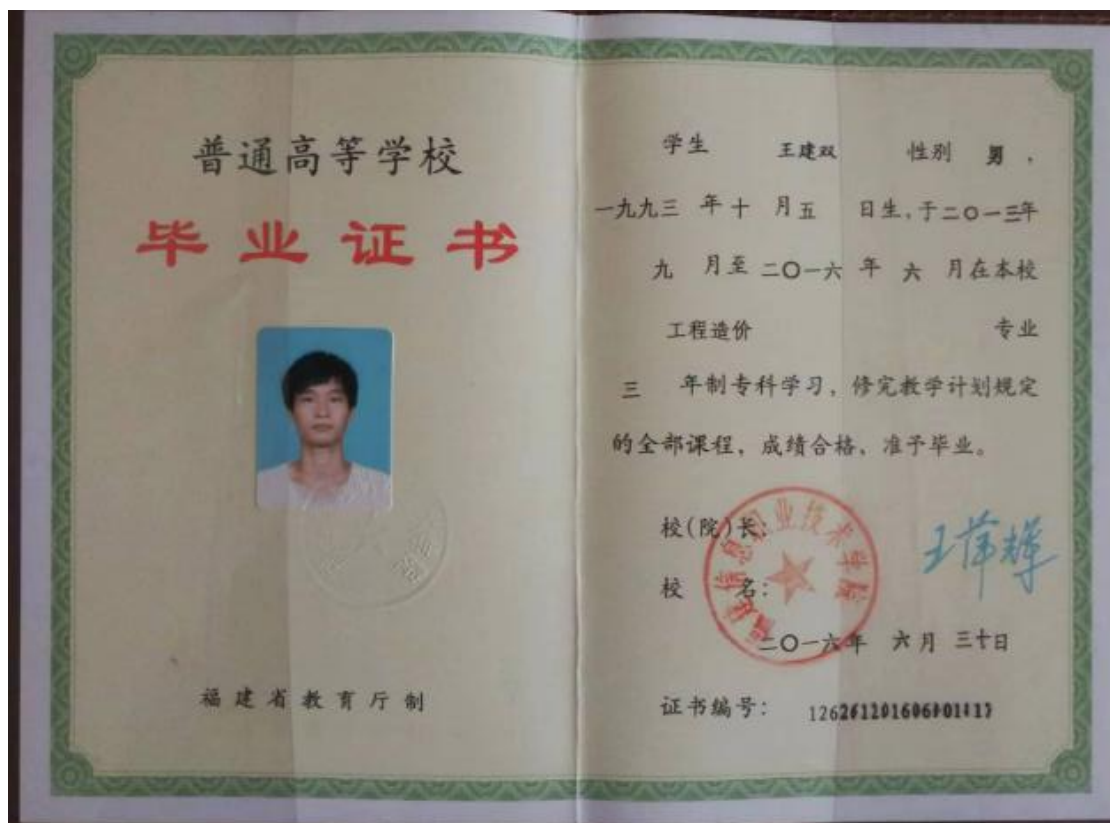 普通高等学校
毕业证书
福建省教育厅制
学生 王建双 性别 男，
一九九三 年十 月五 日生，于二〇一三年
九 月至二〇一六 年 六 月在本校
工程造价 专业
三 年制专科学习，修完教学计划规定
的全部课程，成绩合格，准予毕业。
校(院)长：
信息职业技术学院
校 名：
二〇一六年 六月 三十日
证书编号：